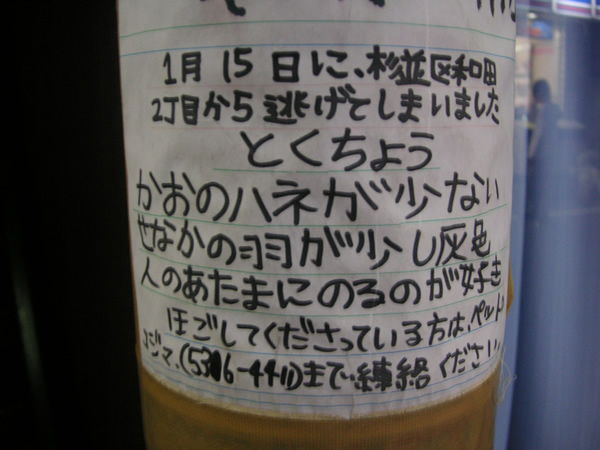 1月15日に、杉並区和田
2丁目から逃げてしまいました
とくちょう
かおのハネが少ない
せなかの羽が少し灰色
人のあたまにのるのが好き
ほごしてくださっている方は、ペット
コジマ、(5306-4411)まで連絡ください。